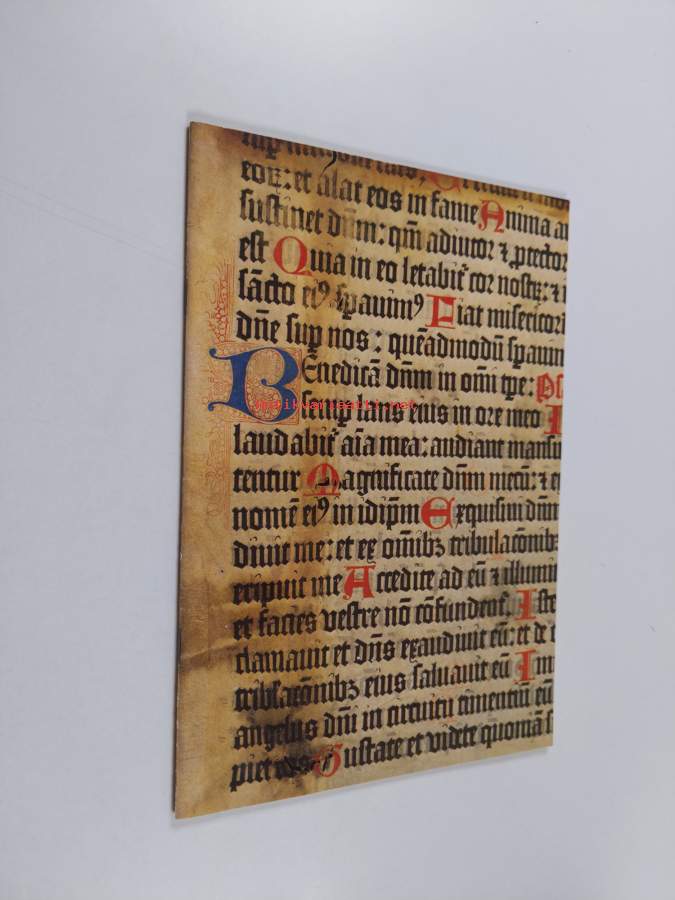 eoꝝ: et alat eos in fame Anima
sustinet dnm: qm adiutor ⁊ ꝓtector
est Quia in eo letabit̉ cor nostꝝ: ⁊
sācto eiꝰ spauimꝰ Fiat misericor
dne suꝑ nos: quēadmodū spauim
BEnedicā dnm in omi tꝑe:
semꝑ laus eius in ore meo
laudabit̉ aīa mea: audiant mansu
tentur Magnificate dnm mecū: ⁊
nomē eiꝰ in idipm Exquisiui dnm
diuit me: et ex omibꝫ tribulacōnibꝫ
eripuit me Accedite ad eū ⁊ illumin
et facies vestre nō cōfundent̉ Iste
clamauit et dns exaudiuit eū: et de
tribulacōnibꝫ eius saluauit eū Im
angelus dni in circuitu timentiū eū
piet eos Gustate et videte quoniā s
antikvariaatti.net